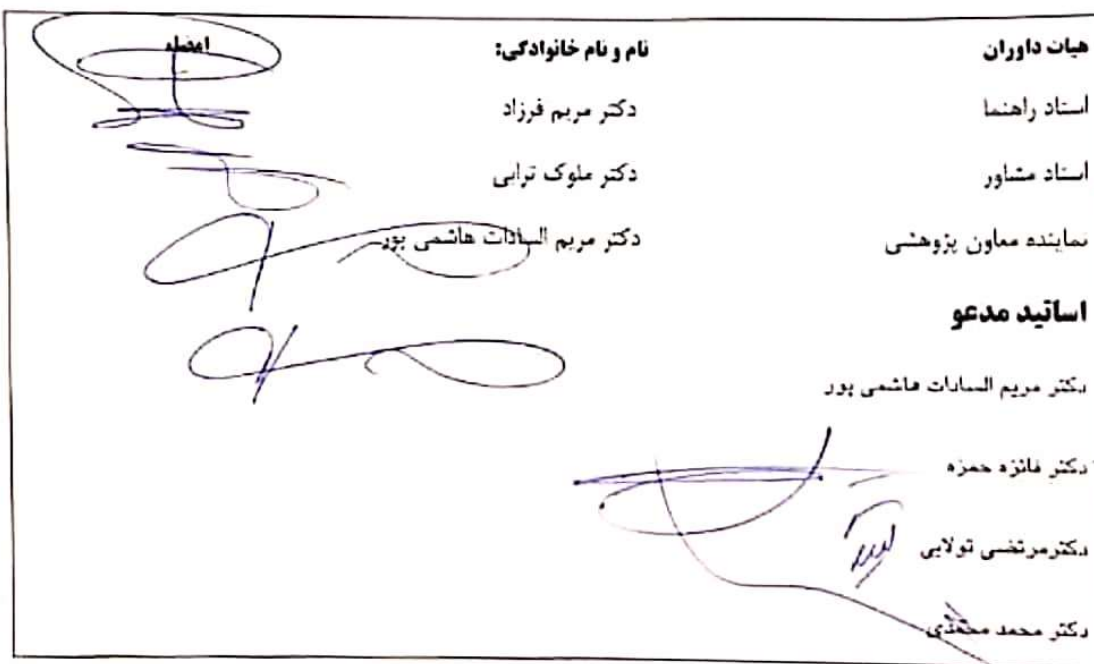 هیات داوران نام و نام خانوادگی: امضاء
استاد راهنما دکتر مریم فرزاد
استاد مشاور دکتر ملوک ترابی
نماینده معاون پژوهشی دکتر مریم السادات هاشمی پور
اساتید مدعو
دکتر مریم السادات هاشمی پور
دکتر فائزه حمزه
دکترمرتضی تولایی
دکتر محمد محمدی